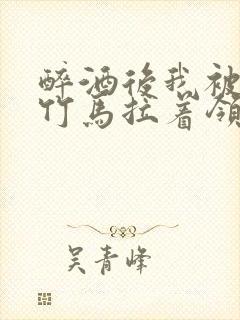 醉酒後我被
竹馬拉着領
吴青峰